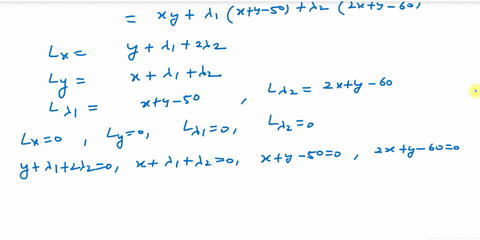 = xy + λ1 (x+y-50) + λ2 (2x+y-60)
Lx = y + λ1 + 2λ2
Ly = x + λ1 + λ2
Lλ1 = x+y-50 , Lλ2 = 2x+y-60
Lx=0 , Ly=0, Lλ1=0, Lλ2=0
y+λ1+2λ2=0, x+λ1+λ2=0, x+y-50=0, 2x+y-60=0